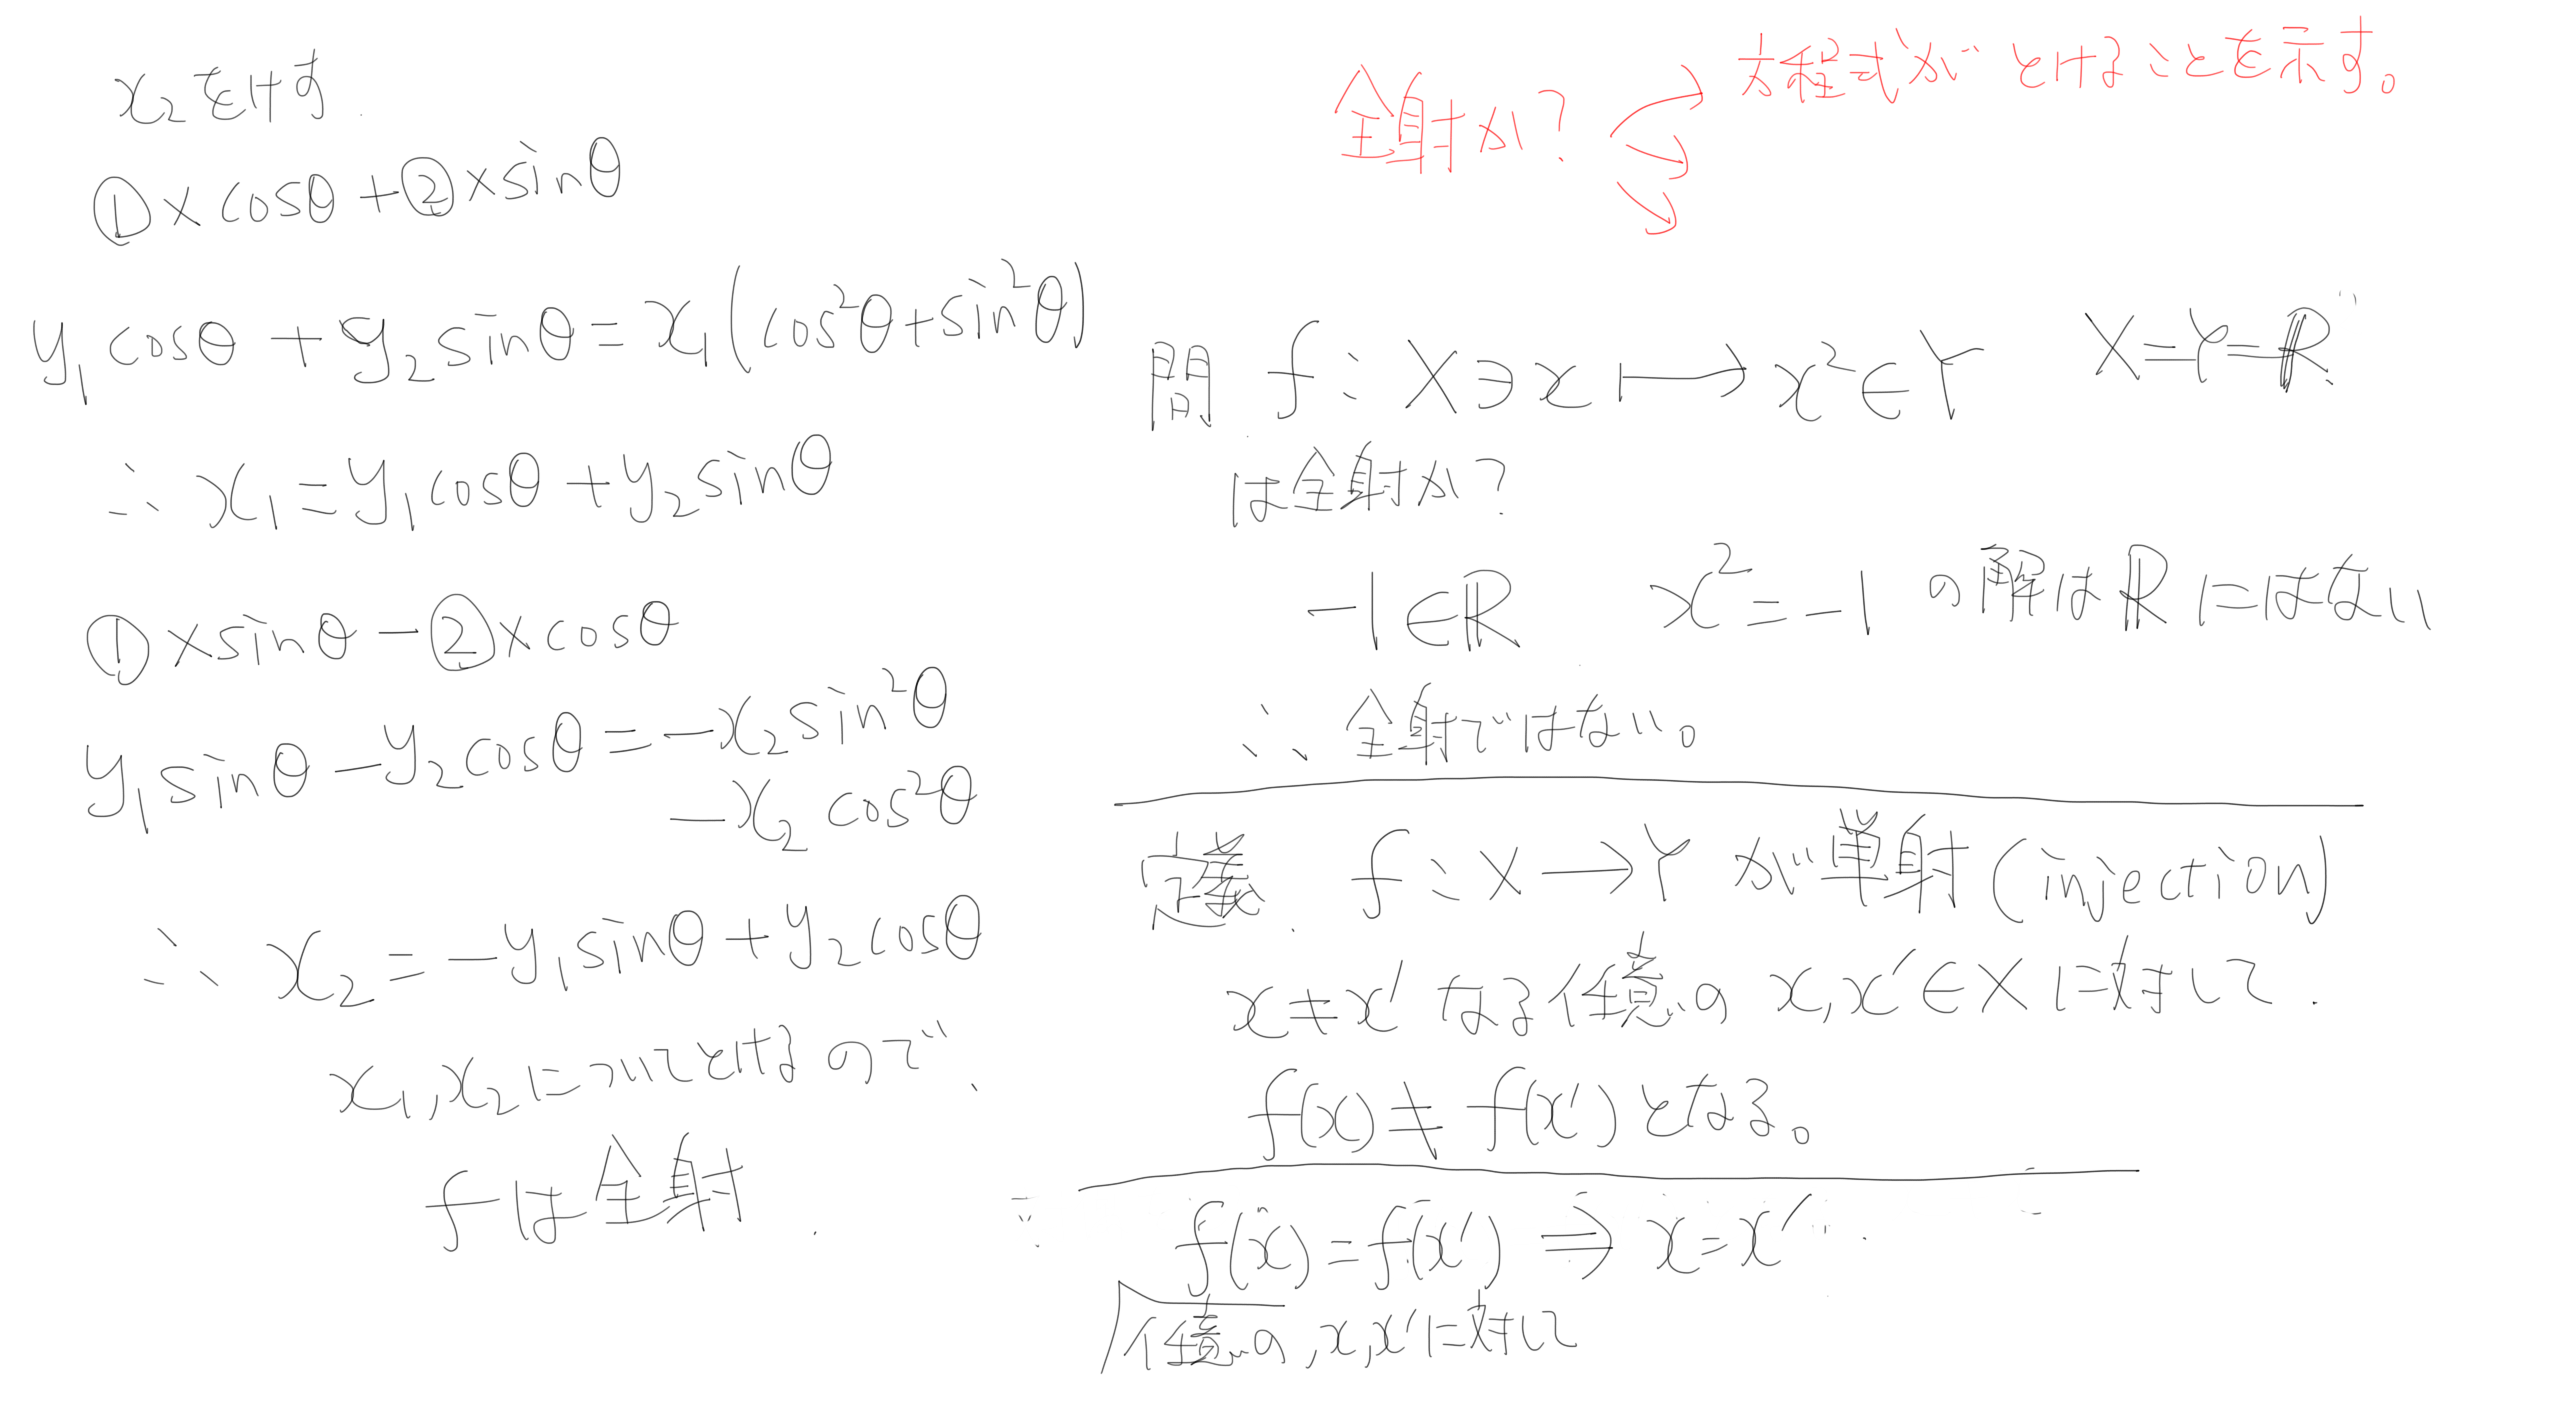 x₂をけす
①×cosθ+②×sinθ
y₁cosθ+y₂sinθ=x₁(cos²θ+sin²θ)
∴ x₁=y₁cosθ+y₂sinθ
①×sinθ-②×cosθ
y₁sinθ-y₂cosθ=-x₂sin²θ
-x₂cos²θ
∴ x₂=-y₁sinθ+y₂cosθ
x₁,x₂についてとけるので、
fは全射
全射か?
方程式がとけることを示す。
問 f:X∋x↦x²∈Y X=Y=ℝ
は全射か?
-1∈ℝ x²=-1の解はℝにはない
∴ 全射ではない。
定義. f:X→Yが単射(injection)
x≠x′なる任意のx,x′∈Xに対して.
f(x)≠f(x′)となる。
f(x)=f(x′)⇒x=x′
任意の,x,x′に対して